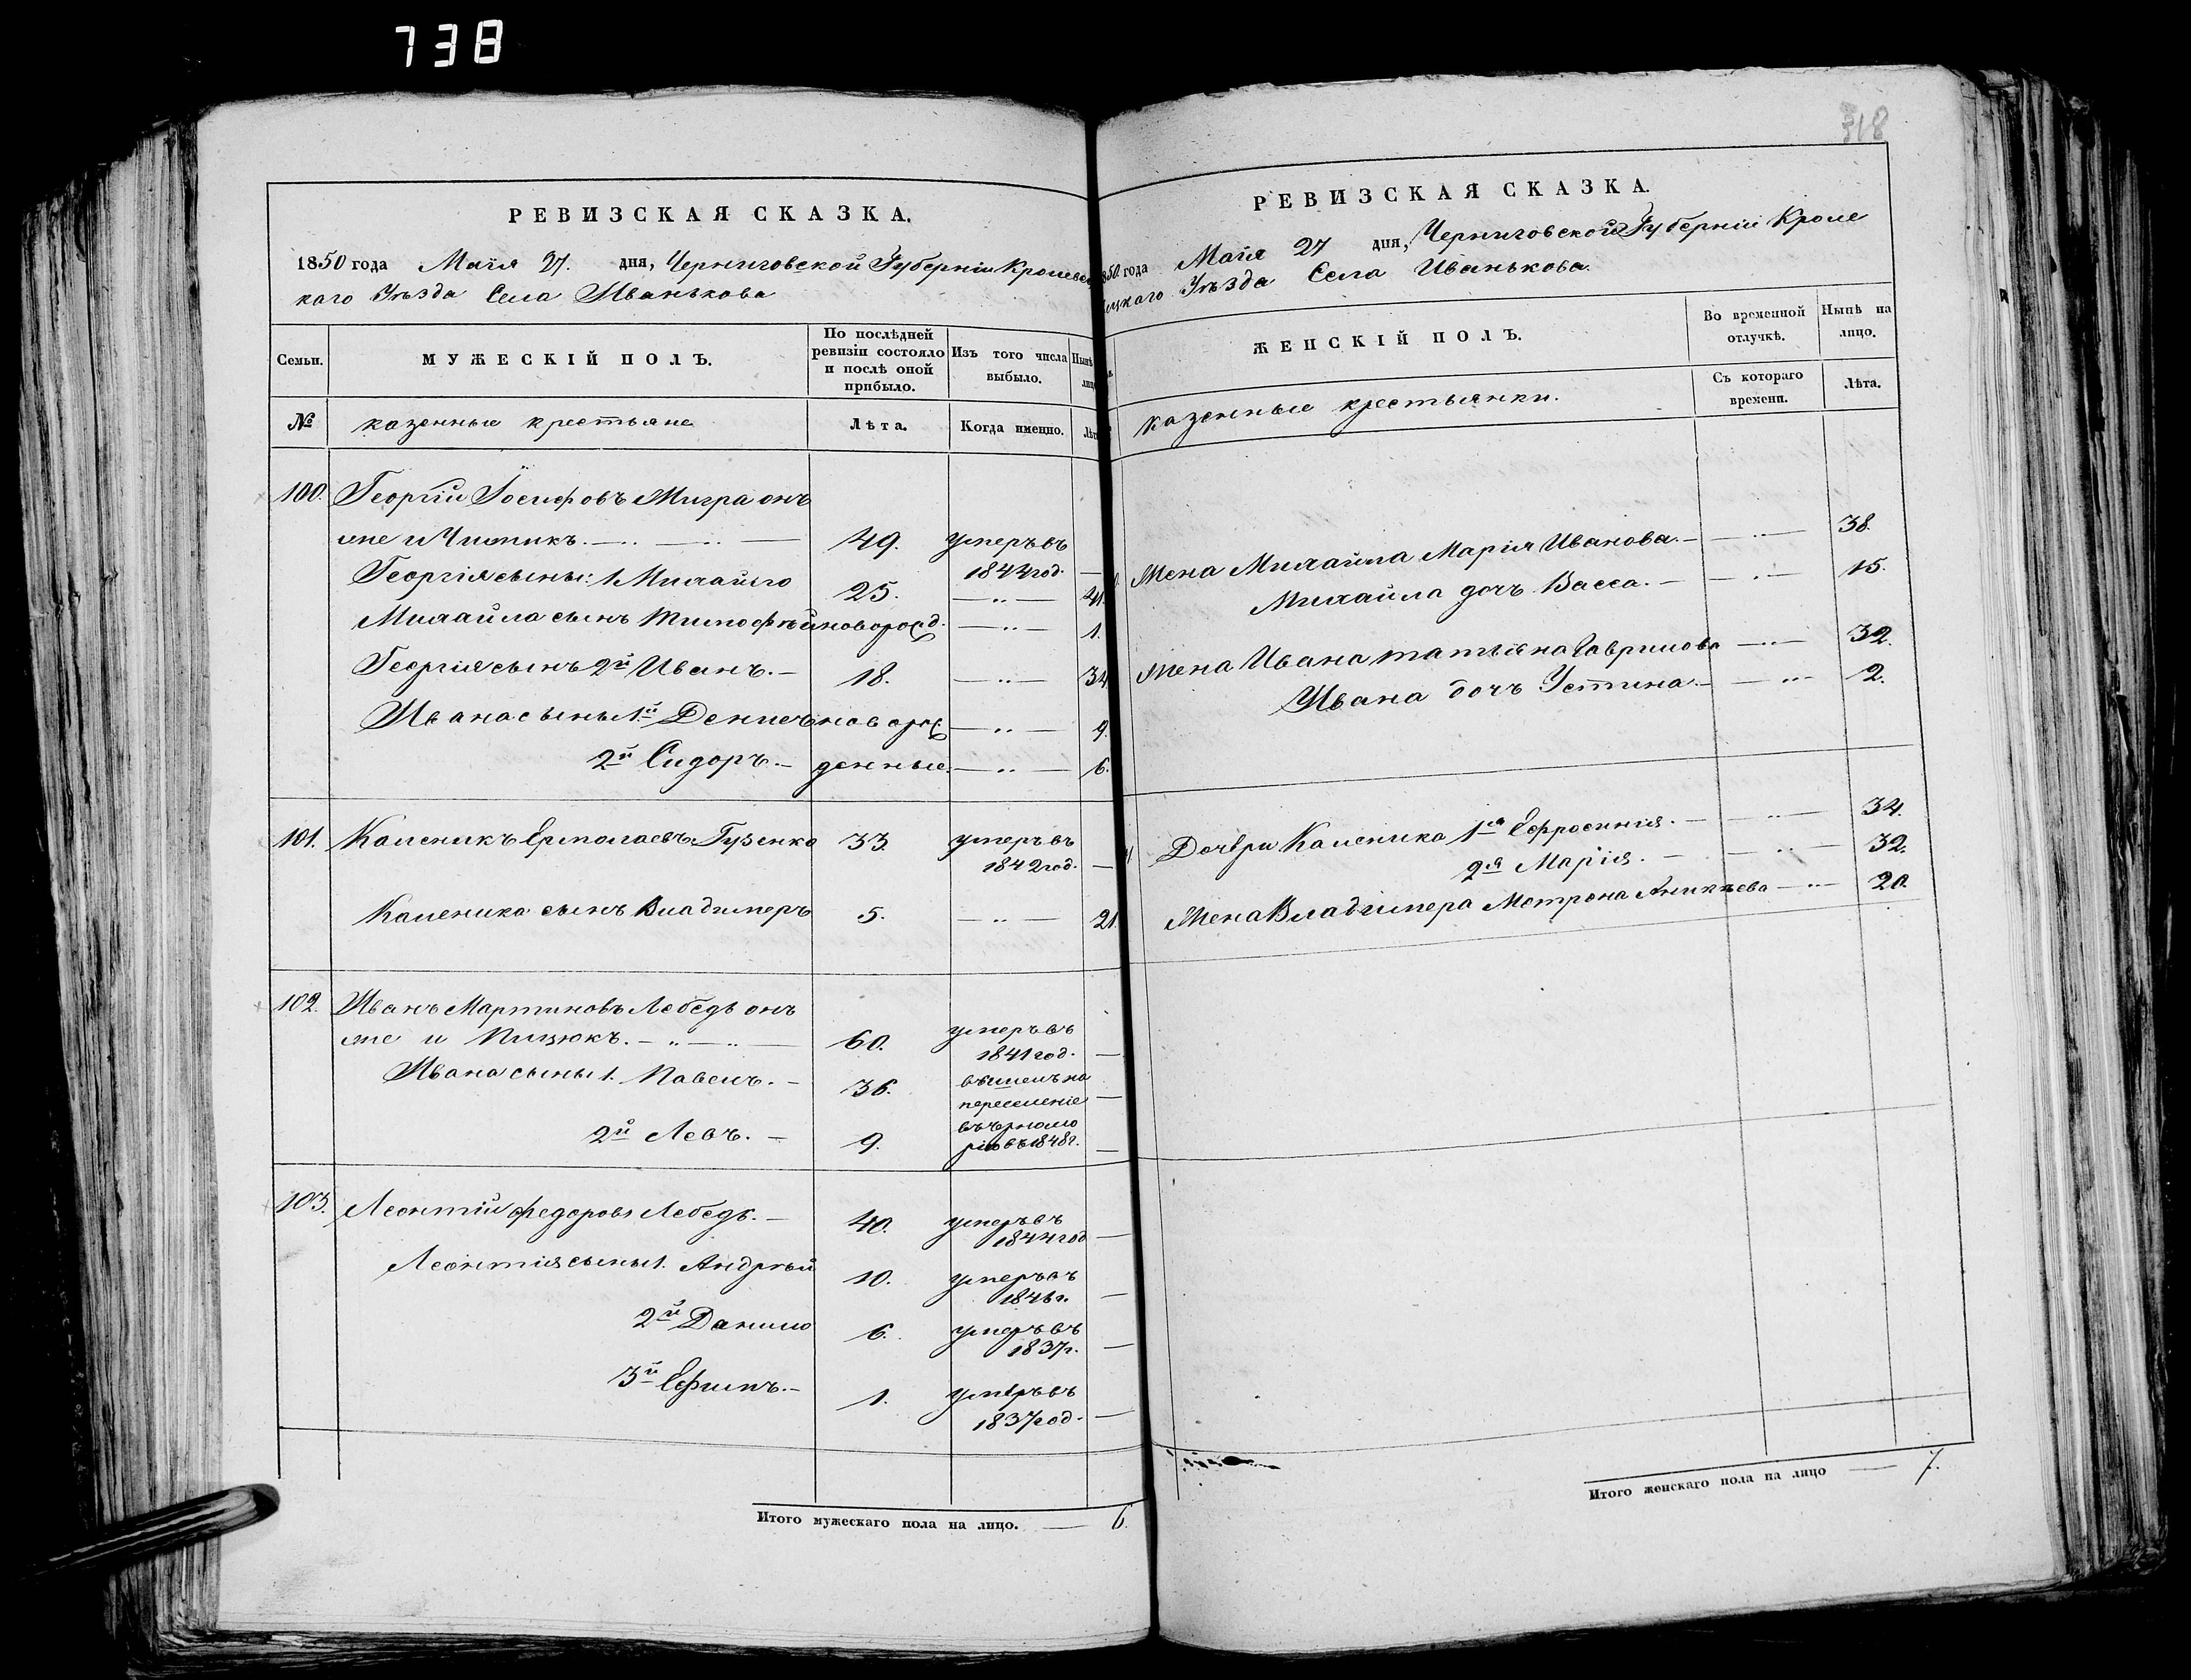 738
318
РЕВИЗСКАЯ СКАЗКА.
1850 года Маія 27. дня, Черниговской Губерніи Кролевец
каго Уѣзда Села Иванькова
Семьи.
МУЖЕСКІЙ ПОЛЪ.
По послѣдней ревизіи состояло и послѣ оной прибыло.
Изъ того числа выбыло.
Нынѣ
№
казенные крестьяне
Лѣта.
Когда именно.
100. Георгій Іосифовъ Мигра онъ
же и Чижикъ. 49. умеръ въ
1844 год.
Георгія сыны: 1 Михайло 25. 41.
Михайла сынъ Тимофѣй новорожд. 1.
Георгія сынъ 2й Иванъ. 18. 34
Ивана сыны 1й Денисъ новорож 9.
2й Сидоръ. денные. 6.
101. Каленикъ Ермолаевъ Гузенко 33. умеръ въ
1842 год.
Каленика сынъ Владимеръ 5. 21.
102. Иванъ Мартиновъ Лебедь онъ
же и Пицюкъ. 60. умеръ въ
1841 год.
Ивана сыны 1. Павелъ. 36. вышелъ на
переселеніе
2й Левъ. 9. въ Черномо
рію въ 1848 г.
103. Леонтій Федоровъ Лебедь. 40. умеръ въ
1844 год
Леонтія сыны 1. Андрѣй 10. умеръ въ
1846 г.
2й Данило 6. умеръ въ
1837 г.
3й Ефимъ. 1. умеръ въ
1837 год.
Итого мужескаго пола на лицо. 6.
РЕВИЗСКАЯ СКАЗКА.
1850 года Маія 27 дня, Черниговской Губерніи Кроле
вецкаго Уѣзда Села Иванькова.
ЖЕНСКІЙ ПОЛЪ.
Во временной отлучкѣ.
Нынѣ на лицо.
казенные крестьянки.
Съ котораго времени.
Лѣта.
Жена Михайла Марія Иванова. 38.
Михайла дочъ Васса. 15.
Жена Ивана Татіяна Гаврилова 32.
Ивана дочъ Устина. 2.
Дочѣри Каленика 1я Ефросинія. 34.
2я Марія. 32.
Жена Владимера Мотрона Аникѣева 20.
Итого женскаго пола на лицо 7.